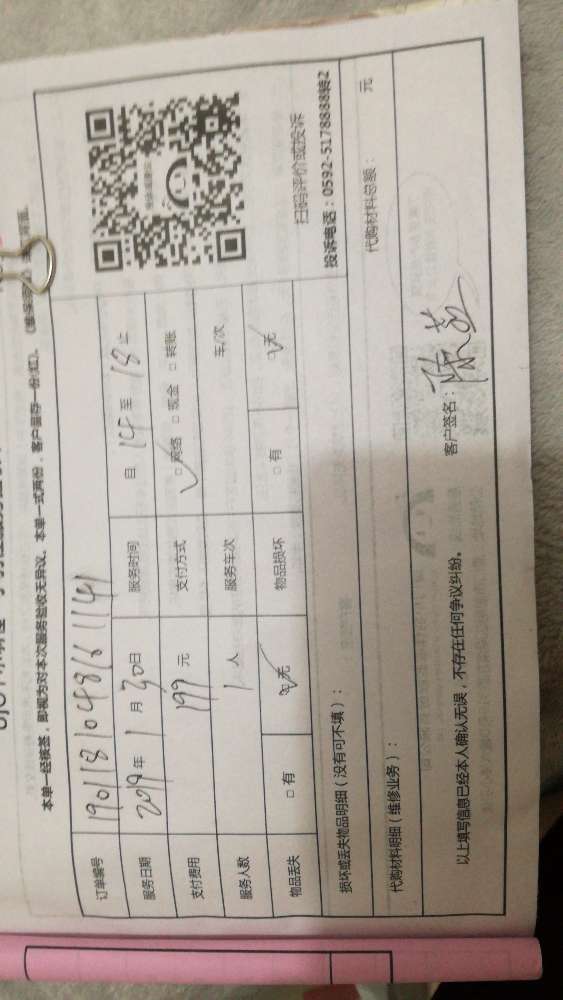 本单一经核签，即视为对本次服务验收无异议。本单一式两份，客户留存一份(红)。
订单编号 19011810481611141
服务日期 2019年 1月 30日 服务时间 自 14 至 18 止
支付费用 199 元 支付方式 ☑ 网络 □ 现金 □ 转账
服务人数 1 人 服务车次 车/次
物品丢失 □ 有 ☑ 无 物品损坏 □ 有 ☑ 无
扫码评价或投诉
投诉电话：0592-5178888转2
损坏或丢失物品明细（没有可不填）：
代购材料明细（维修业务）： 代购材料总额： 元
以上填写信息已经本人确认无误，不存在任何争议纠纷。 客户签名：